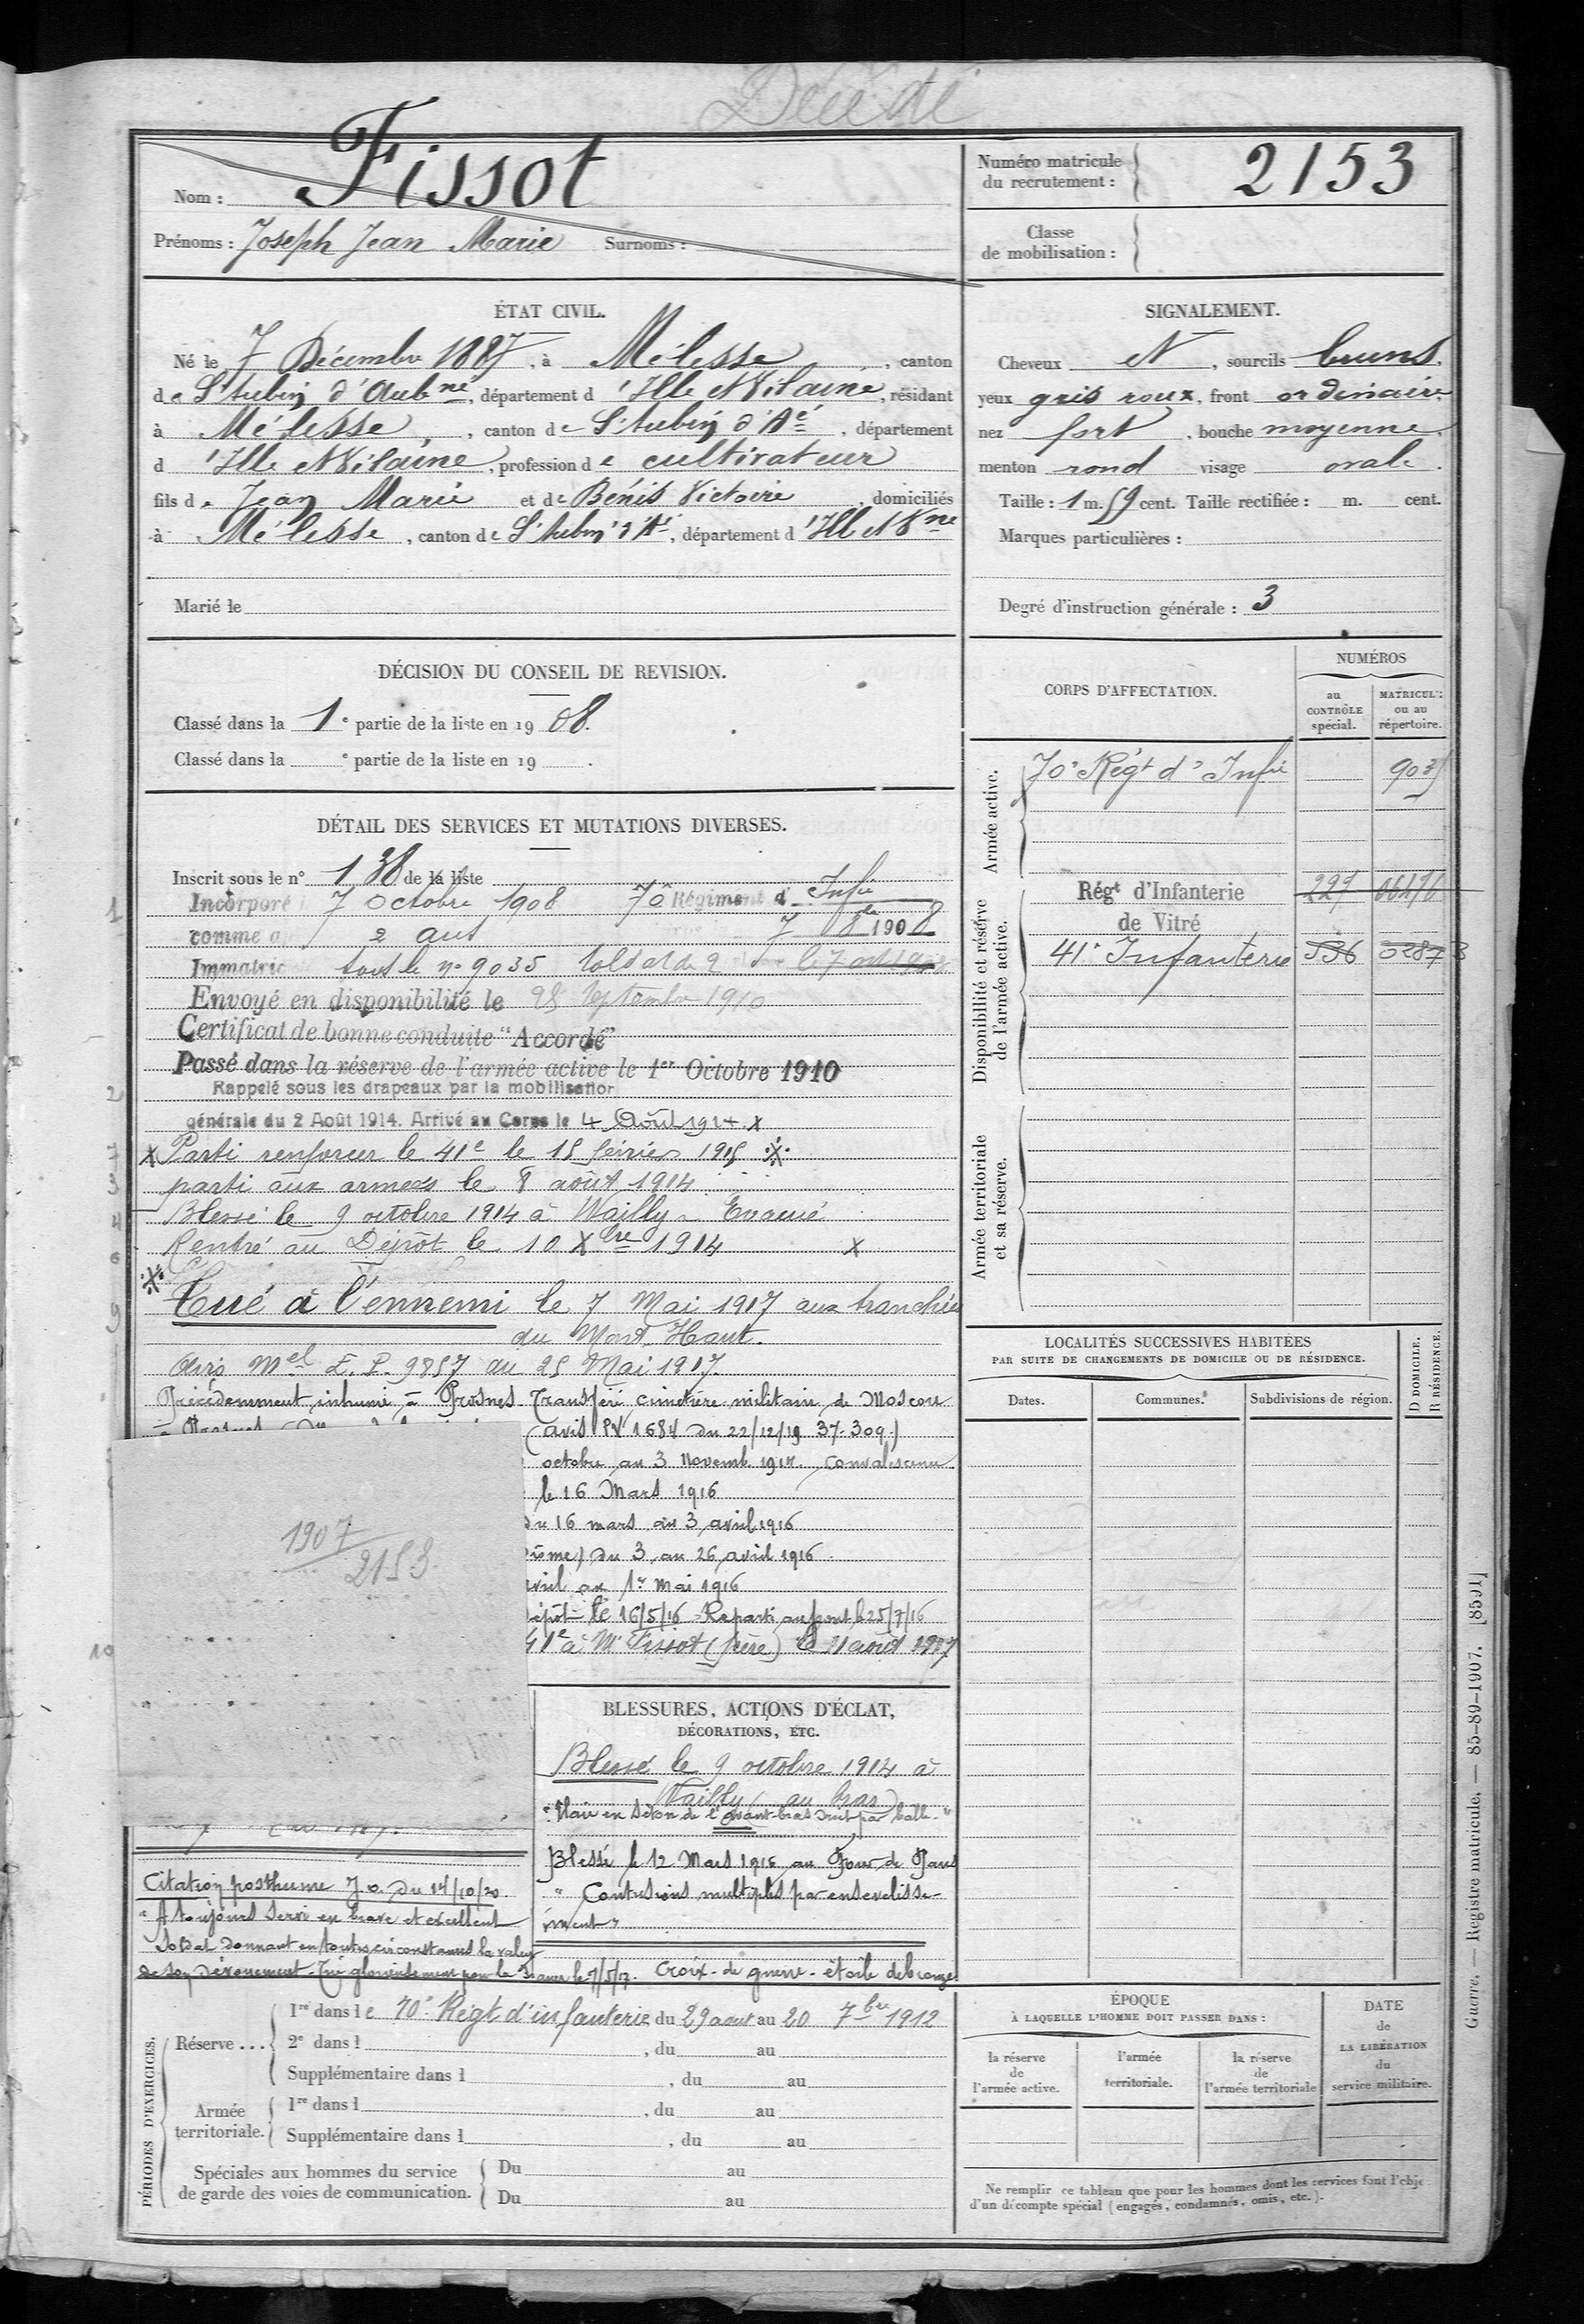 Décédé
Nom : Fissot
Prénoms : Joseph Jean Marie Surnoms :
Numéro matricule du recrutement : 2153
Classe de mobilisation :
ÉTAT CIVIL.
Né le 7 Décembre 1887, à Mélesse, canton
de St Aubin d'Aubné, département d'Ille et Vilaine, résidant
à Mélesse, canton de St Aubin d'Aé, département
d'Ille et Vilaine, profession de cultivateur
fils de Jean Marie et de Bénis Victoire, domiciliés
à Mélesse, canton de St Aubin d'Aé, département d'Ille et Vne
Marié le
SIGNALEMENT.
Cheveux et, sourcils bruns,
yeux gris roux, front ordinaire,
nez fort, bouche moyenne,
menton rond visage ovale.
Taille : 1 m. 59 cent. Taille rectifiée : m. cent.
Marques particulières :
Degré d'instruction générale : 3
DÉCISION DU CONSEIL DE REVISION.
Classé dans la 1e partie de la liste en 1908.
Classé dans la e partie de la liste en 19 .
DÉTAIL DES SERVICES ET MUTATIONS DIVERSES.
Inscrit sous le n° 138 de la liste
Incorporé 7 octobre 1908 70 Régiment d' Infie
comme a 2 ans 7 8bre 1908
Immatric sous le n° 9035 Soldat de 2
Envoyé en disponibilité le 25 Septembre 1910
Certificat de bonne conduite "Accordé"
Passé dans la réserve de l'armée active le 1er Octobre 1910
Rappelé sous les drapeaux par la mobilisation
générale du 2 Août 1914. Arrivé au Corps le 4 Août 1914. x
x Parti renforcer le 41e le 15 février 1915
parti aux armées le 8 août 1914
Blessé le 9 octobre 1914 à Wailly - Evacué
Rentré au Dépôt le 10 Xbre 1914 x
Tué à l'ennemi le 7 Mai 1917 aux tranchées
du Mont Haut.
Avis Mel L.P. 9857 du 25 Mai 1917.
Précédemment inhumé à Prosnes Transféré cimetière militaire de Moscou
(avis PV 1684 du 22/12/19 37-309)
octobre au 3 Novemb. 1914. Convalescence
le 16 Mars 1916
du 16 mars au 3 avril 1916
du 3 au 26 avril 1916
avril au 1er mai 1916
dépôt le 16/5/16 Reparti au front le 25/7/16
41e à Mr Fissot (père) le 11 août 1917
1907
2153
CORPS D'AFFECTATION.
NUMÉROS
au CONTRÔLE spécial.
MATRICULE ou au répertoire.
Armée active.
70e Régt d'Infie 9035
Disponibilité et réserve de l'armée active.
Régt d'Infanterie de Vitré 227 06176
41e Infanterie 536 02873
Armée territoriale et sa réserve.
LOCALITÉS SUCCESSIVES HABITÉES
PAR SUITE DE CHANGEMENTS DE DOMICILE OU DE RÉSIDENCE.
Dates. Communes. Subdivisions de région. D DOMICILE. R RÉSIDENCE.
BLESSURES, ACTIONS D'ÉCLAT,
DÉCORATIONS, ETC.
Blessé le 9 octobre 1914 à
Wailly (au bras)
"Plaie en séton de l'avant-bras droit par balle."
Blessé le 12 Mars 1916 au Four de Paris
"Contusions multiples par ensevelisse-
ment"
Croix de guerre - étoile de bronze
Citation posthume J.O. du 14/10/20.
"A toujours servi en brave et excellent
Soldat donnant en toutes circonstances la valeur
de son dévouement. Tué glorieusement pour la France le 7/5/17.
PÉRIODES D'EXERCICES.
Réserve... 1re dans le 70e Régt d'infanterie du 29 août au 20 7bre 1912
2e dans l , du au
Supplémentaire dans l , du au
Armée territoriale. 1re dans l , du au
Supplémentaire dans l , du au
Spéciales aux hommes du service de garde des voies de communication. Du au
Du au
ÉPOQUE
À LAQUELLE L'HOMME DOIT PASSER DANS :
la réserve de l'armée active.
l'armée territoriale.
la réserve de l'armée territoriale
DATE de LA LIBÉRATION du service militaire.
Ne remplir ce tableau que pour les hommes dont les services font l'obje
d'un décompte spécial (engagés, condamnés, omis, etc.).
Guerre. — Registre matricule. — 85-89-1907. [8591]